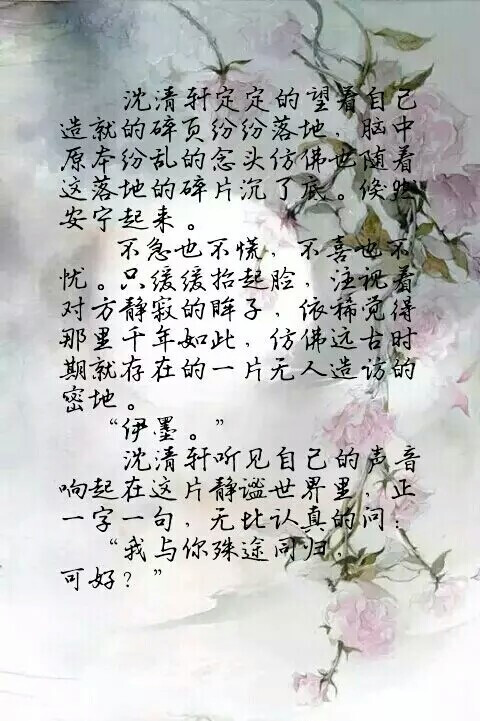 沈清轩定定的望着自己
造就的碎页纷纷落地，脑中
原本纷乱的念头仿佛也随着
这落地的碎片沉了底。倏地
安宁起来。
不急也不慌，不喜也不
忧。只缓缓抬起脸，注视着
对方静寂的眸子，依稀觉得
那里千年如此，仿佛远古时
期就存在的一片无人造访的
密地。
“伊墨。”
沈清轩听见自己的声音
响起在这片静谧世界里，正
一字一句，无比认真的问：
“我与你殊途同归，
可好？”